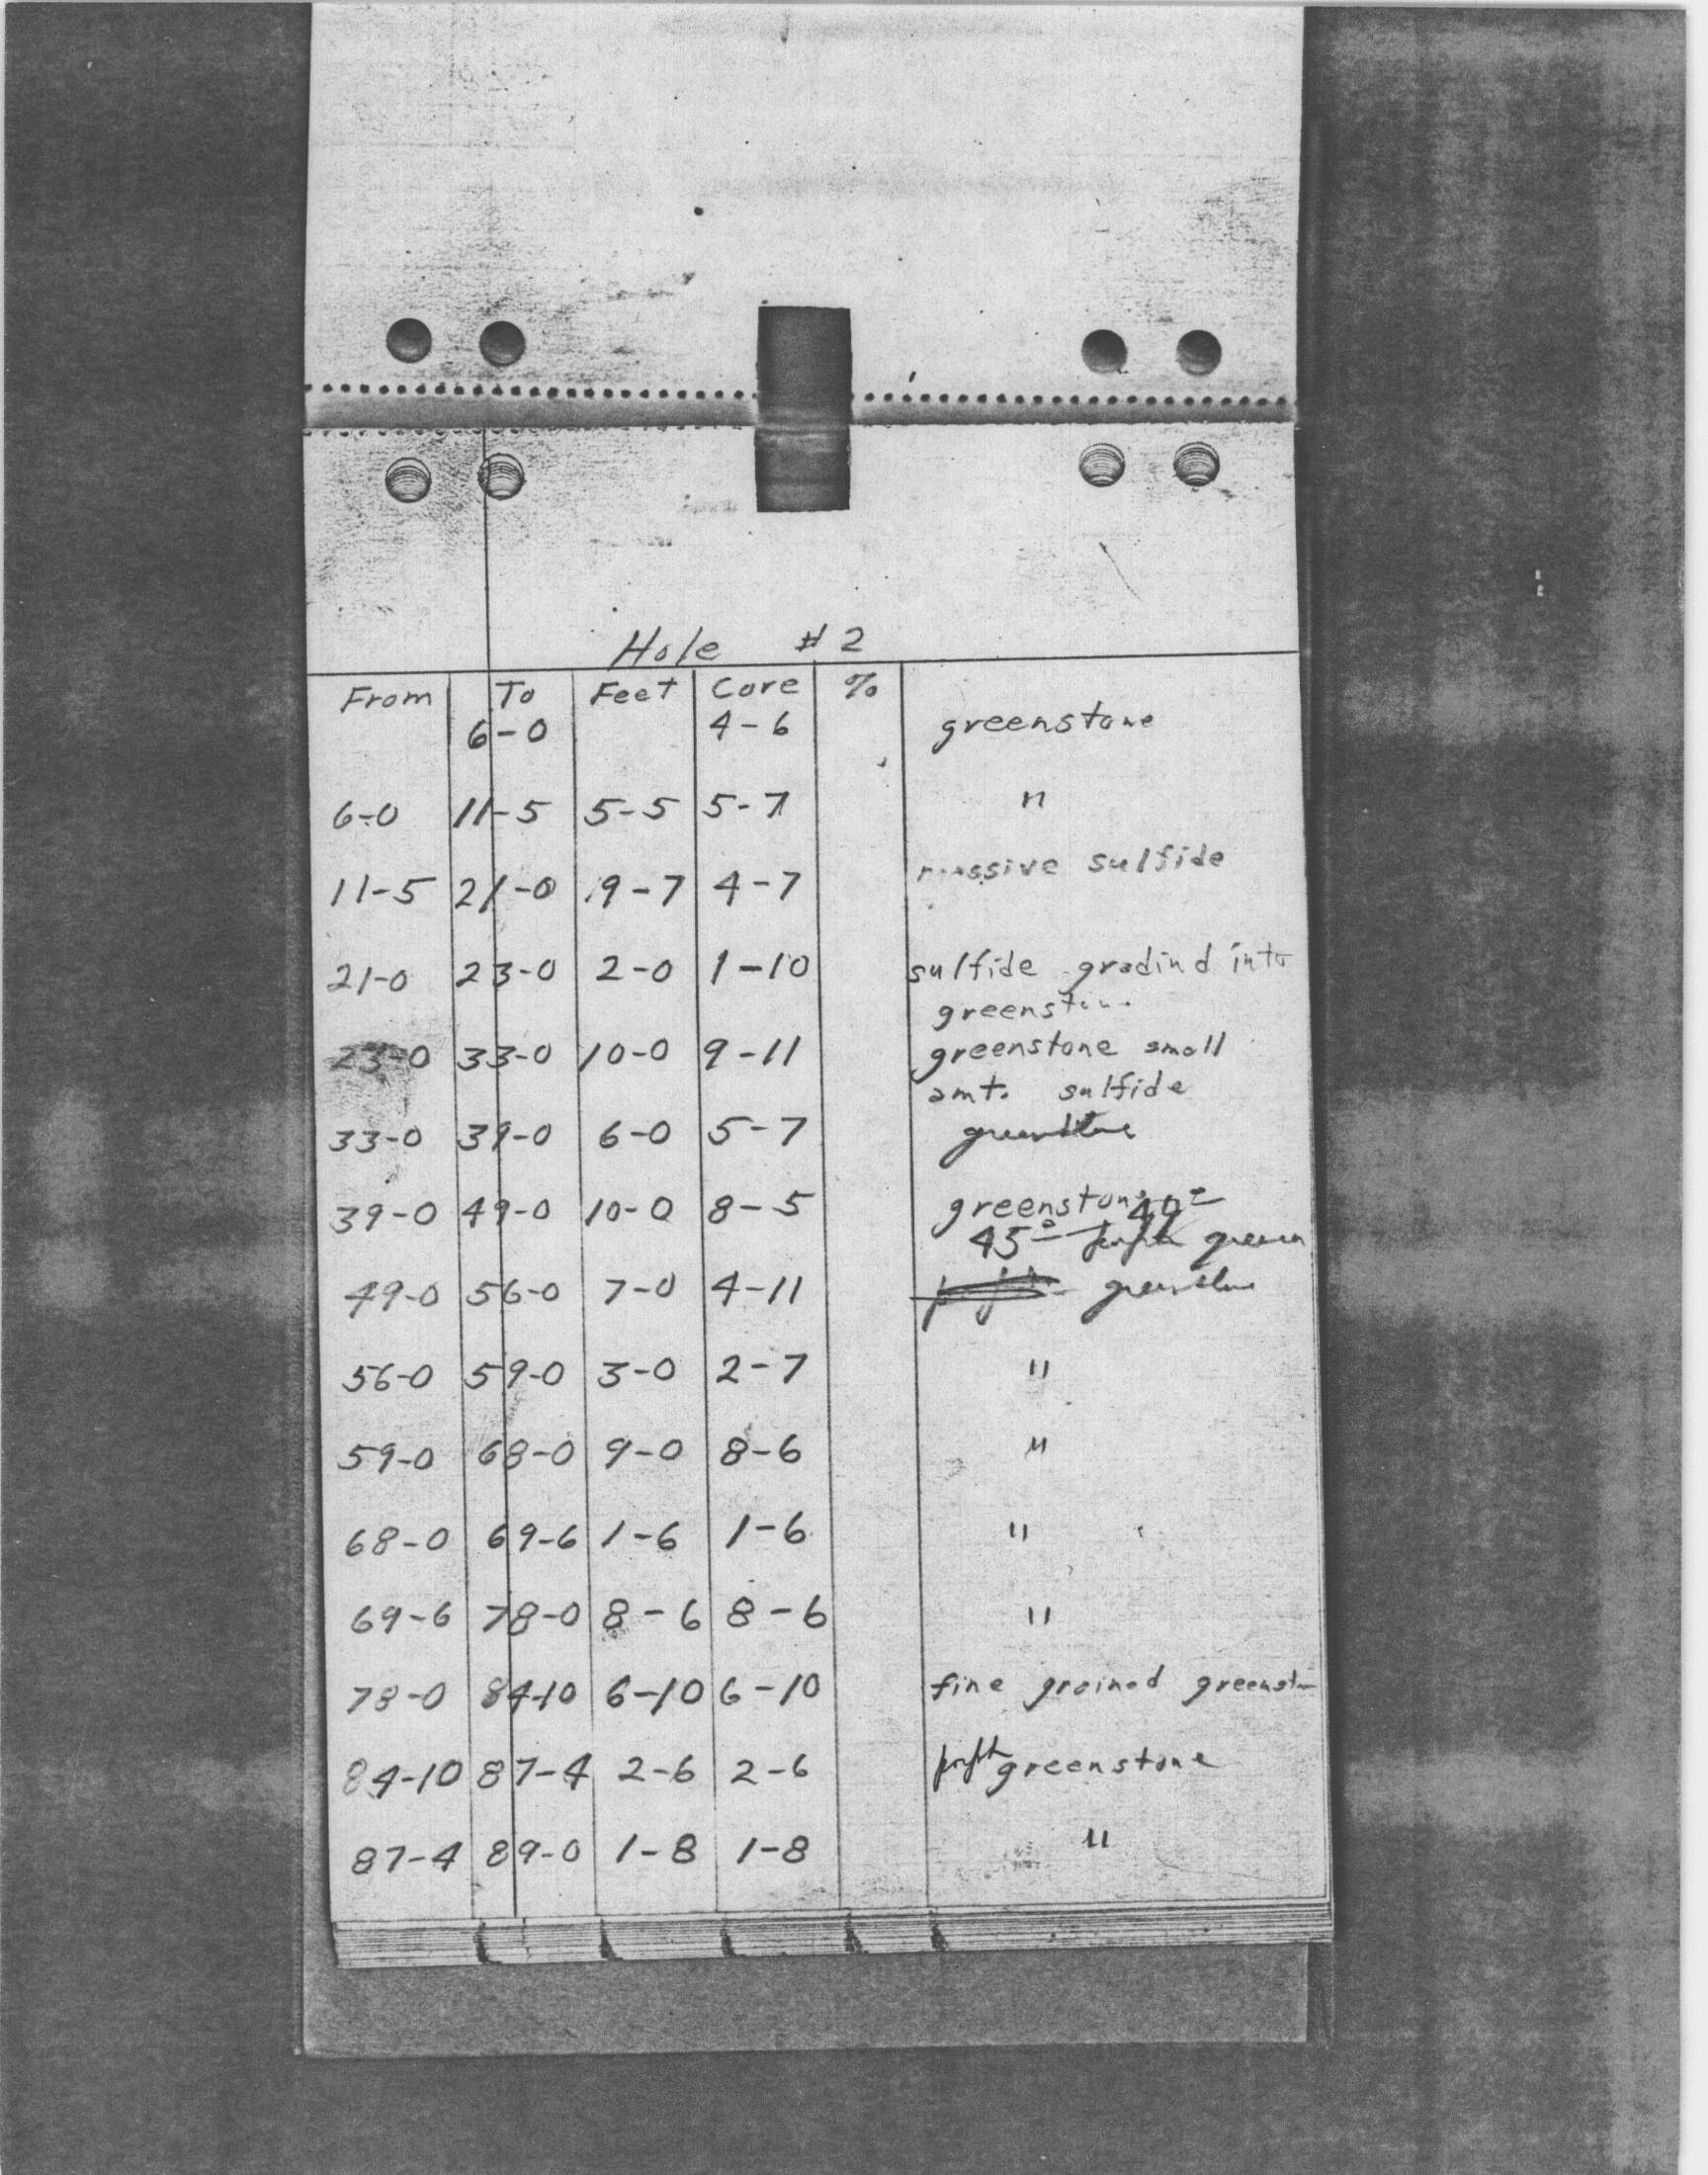 Hole # 2
From To Feet Core %
6-0 4-6 greenstone
6-0 11-5 5-5 5-7 "
11-5 21-0 9-7 4-7 massive sulfide
21-0 23-0 2-0 1-10 sulfide gradind into
greenston
23-0 33-0 10-0 9-11 greenstone small
amt. sulfide
33-0 39-0 6-0 5-7 greenstone
39-0 49-0 10-0 8-5 greenstone 40°
45° green
49-0 56-0 7-0 4-11 greenstone
56-0 59-0 3-0 2-7 "
59-0 68-0 9-0 8-6 "
68-0 69-6 1-6 1-6 "
69-6 78-0 8-6 8-6 "
78-0 84-10 6-10 6-10 fine grained greenst
84-10 87-4 2-6 2-6 greenstone
87-4 89-0 1-8 1-8 "